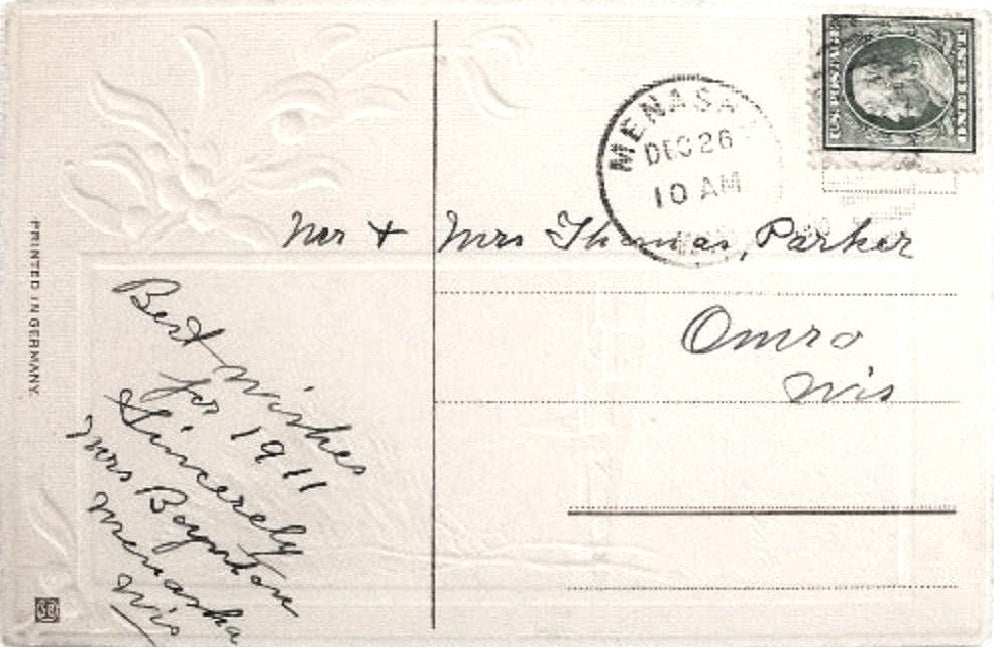 PRINTED IN GERMANY.
Best Wishes
for 1911
Sincerely
Mrs Boynton
Menasha
Wis
MENASHA
DEC 26
10 AM
Mr + Mrs Thomas, Parker
Omro
Wis